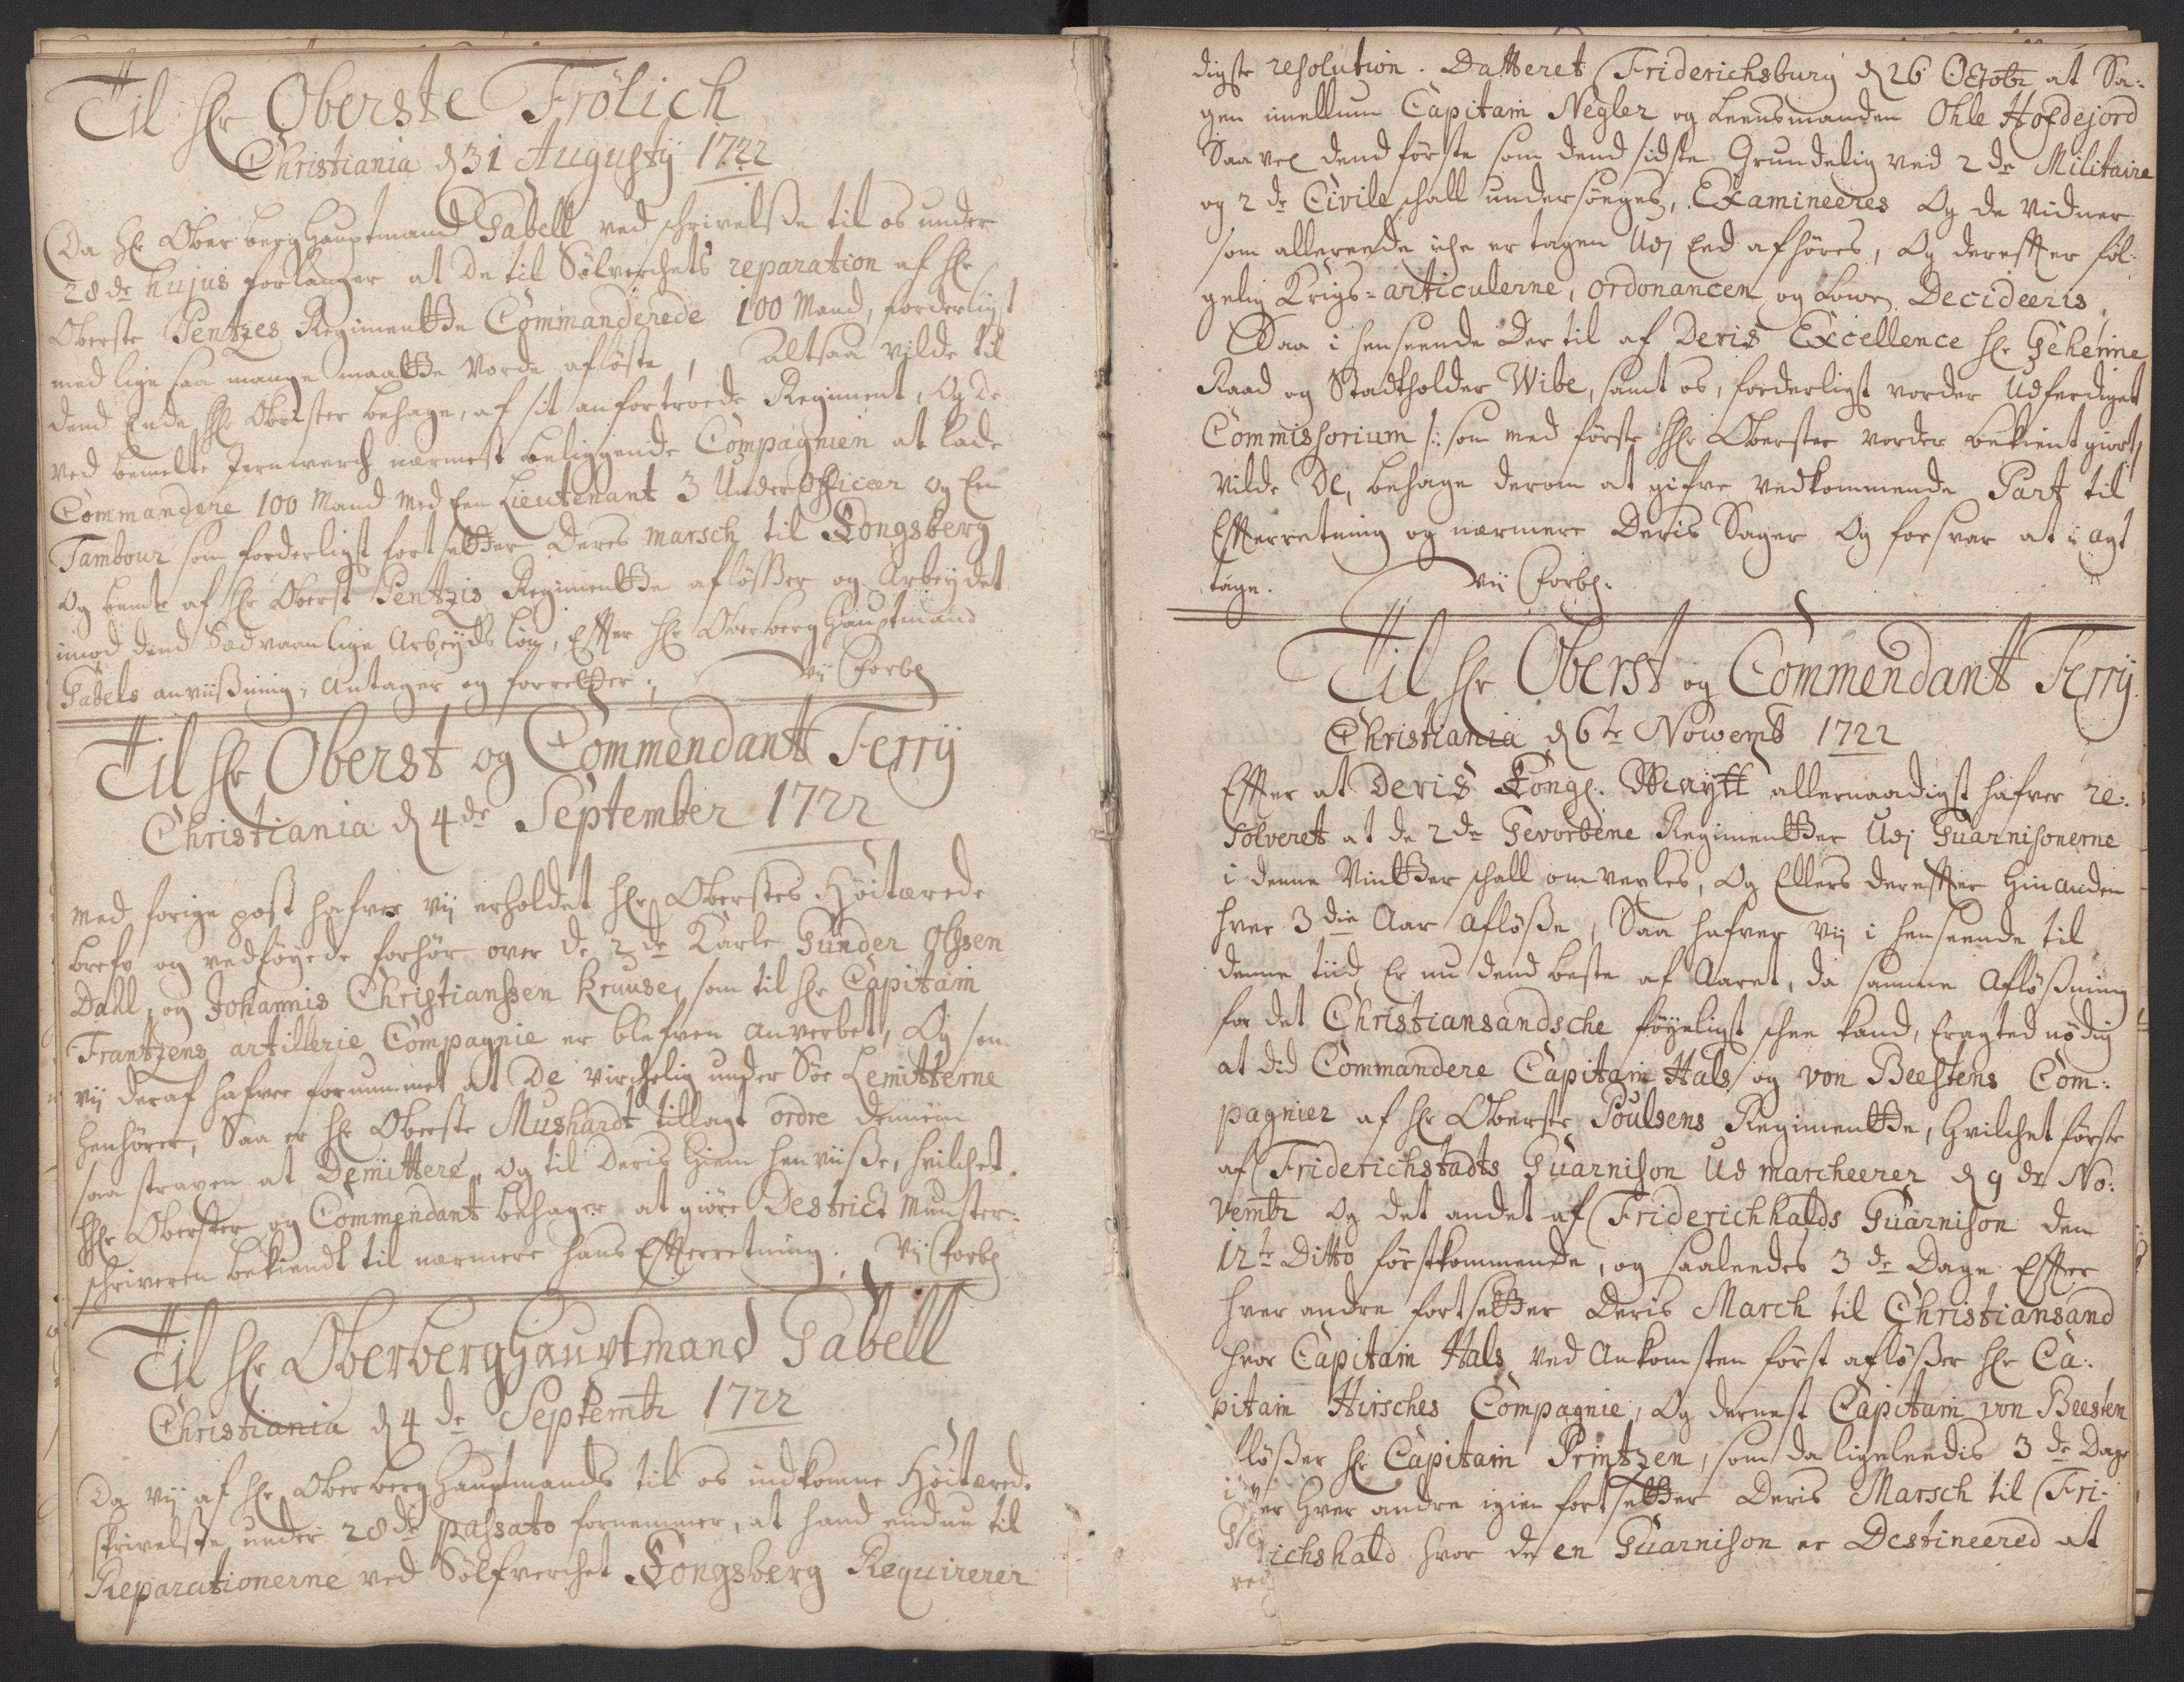 Til Hr Oberste Frölich
Christiania d 31 Augustij 1722
Da Hr Ober berg Hauptmand Gabell ved schrivelsße til os under
28de hujus forlanger at de til Sølverchets reparation af Hr
Oberste Pentzes Regimentte Commanderede 100 Mand, forderligst
med lige saa mange maatte vorde afløste, Altsaa vilde til
dend Ende Hr Obrister behage, af sit anfortroede Regiment, og de
ved bemelte Jernwerch nærmest beliggende Compagnien at lade
Commandere 100 Mand med Een Lieutenant 3 UnderOfficeer og Een
Tambour som forderligst fortsetter deres marsch til Kongsberg
og bemte af Hr Oberst Pentzis Regimentte afløsßer og Arbeydet
imod dend Sædvaanlige Arbeyds løn, Effter Hr Oberberg Hauptmand
Gabels anviisßning, Antager og forretter. Vij Forbl
Til Hr Oberst og Commendantt Ferrÿ
Christiania d 4de September 1722
Med forige post hafver vij erholdet Hr Oberstes Höitærede
bref og vedføyede forhör over de 2de Karle Gunder Olssen
Dahl, og Johannis Christianssen Kruuse, som til Hr Capitain
Frantzens artillerie Compagnie er blefven anverbet, Og som
vij deraf hafver fornummet at De virchelig under Söe Lemitterne
henhörer, Saa er Hr Oberste Mushardt tillagt ordre dennem
saa straxen at Demittere, og til deris Hiem henviisße, hvilchet
Hr Oberster og Commendant behager at giöre Destrict Munster-
schriveren bekiendt til nærmere hans Effterretning. Vij Forbl
Til Hr OberbergHauvtmand Gabell
Christiania d 4de Septembr 1722
Da vij af Hr Oberberg Hauptmands til os indkomne Höitæred.
skrivelsße under 28de passato fornemmer, at hand endnu til
Reparationerne ved Sölfverchet Kongsberg Requirerer
digste resolution. Datteret Friderichsburg d 26 Octobr at Sa-
gen imellum Capitain Negler og Leensmanden Ohle Hofdejord
Saavel dend förste som dend sidste Grundelig ved 2de Militaire
og 2de Civile schall undersøeges, Examineeres Og de Vidner
som allereede iche er tagen Udj Eed afhöres, Og dereffter föl-
gelig Krigs-articulerne, ordonancen og Lowen Decideeris,
Saa i henseende der til af Deris Excellence Hr Geheime
Raad og Stadtholder Wibe, samt os, forderligst vorder Udferdiget
Commissorium /: som med förste Hr Oberster vorder bekient giort,
vilde De, behage derom at gifve vedkommende Part til
Effterretning og nærmere deris Sager og forsvar at i agt
tage. Vij Forbl.
Til Hr Oberst og Commendantt Ferrÿ.
Christiania d 6te Nowemb 1722
Effter at Deris Kongl. Maytt allernaadigst hafver re-
solveret at de 2de Gevorbene Regimentter Udj Guarnisonerne
i denne Vintter schall omvexles, Og Ellers dereffter hinanden
hver 3die Aar afløsße, Saa hafver vij i henseende til
denne tiid Er nu dend beste af Aaret, da samme Afløsßning
for det Christiansandsche föyeligst schee kand, Eragted nödig
at did Commandere Capitain Hals og von Beestens Com-
pagnier af Hr Oberste Poulsens Regimentte, Hvilchet förste
af Friderichstadts Guarnison Ud marcheerer d 9de No-
vembr og det andet af Friderichhalds Guarnison den
12te Ditto förstkommende, og saaleedes 3de Dage Effter
hver andre fortsetter deris March til Christiansand
hvor Capitain Hals ved Ankomsten först aflösßer Hr Ca-
pitain Hirsches Compagnie, Og dernest Capitain von Beesten
lösßer Hr Capitain Printzen, som da ligeleedis 3de Dage
er hver andre igien fortsetter deris Marsch til Fri-
ichshald hvor de en Guarnison er Destineered at